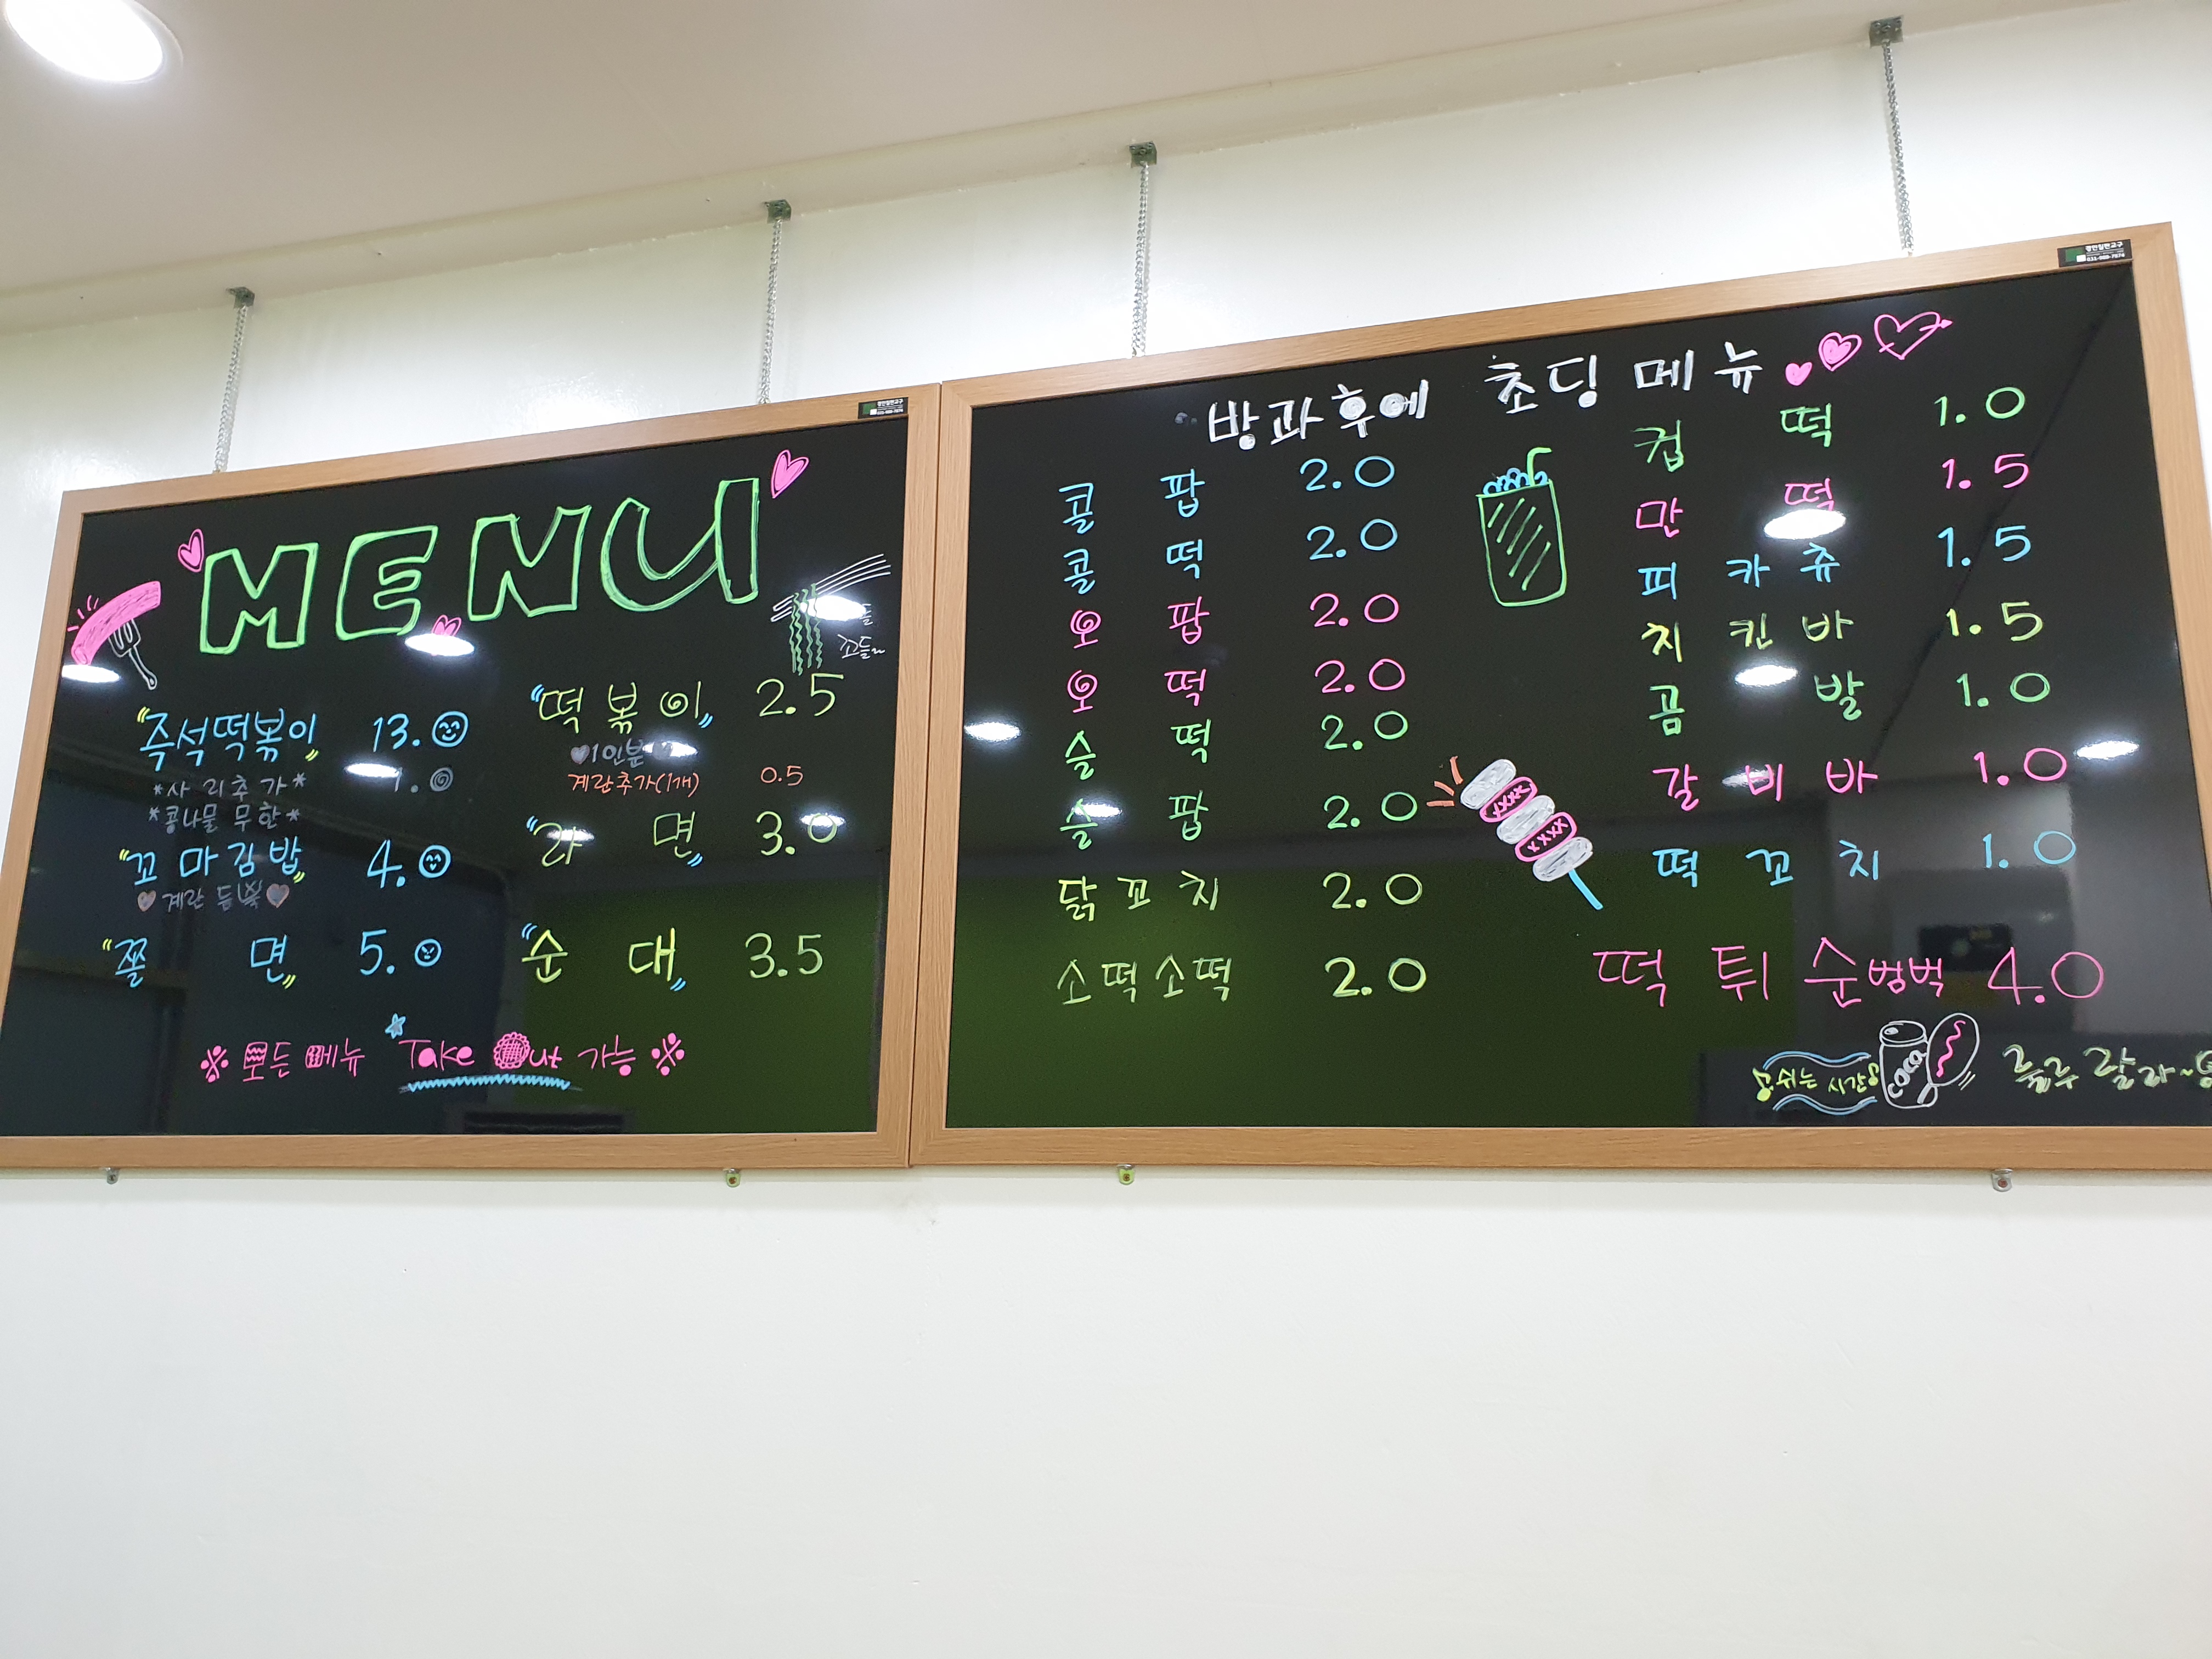 MENU
꼬들~
"즉석떡볶이" 13.0
*사리추가* 1.0
*콩나물 무한*
"꼬마김밥" 4.0
계란 듬뿍
"쫄 면" 5.0
"떡볶이" 2.5
1인분
계란추가(1개) 0.5
"라 면" 3.0
"순 대" 3.5
※ 모든 메뉴 Take Out 가능 ※
방과후에 초딩 메뉴
콜 팝 2.0
콜 떡 2.0
오 팝 2.0
오 떡 2.0
슬 떡 2.0
슬 팝 2.0
닭꼬치 2.0
소떡소떡 2.0
컵 떡 1.0
만 떡 1.5
피카츄 1.5
치킨바 1.5
곰 발 1.0
갈비바 1.0
떡꼬치 1.0
떡튀순범벅 4.0
쉬는 시간
COCA
룰루 랄라~